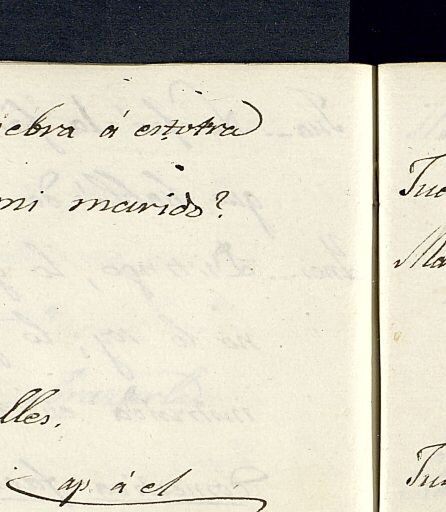 ebra á estotra
mi marido?
lles.
ap. á el